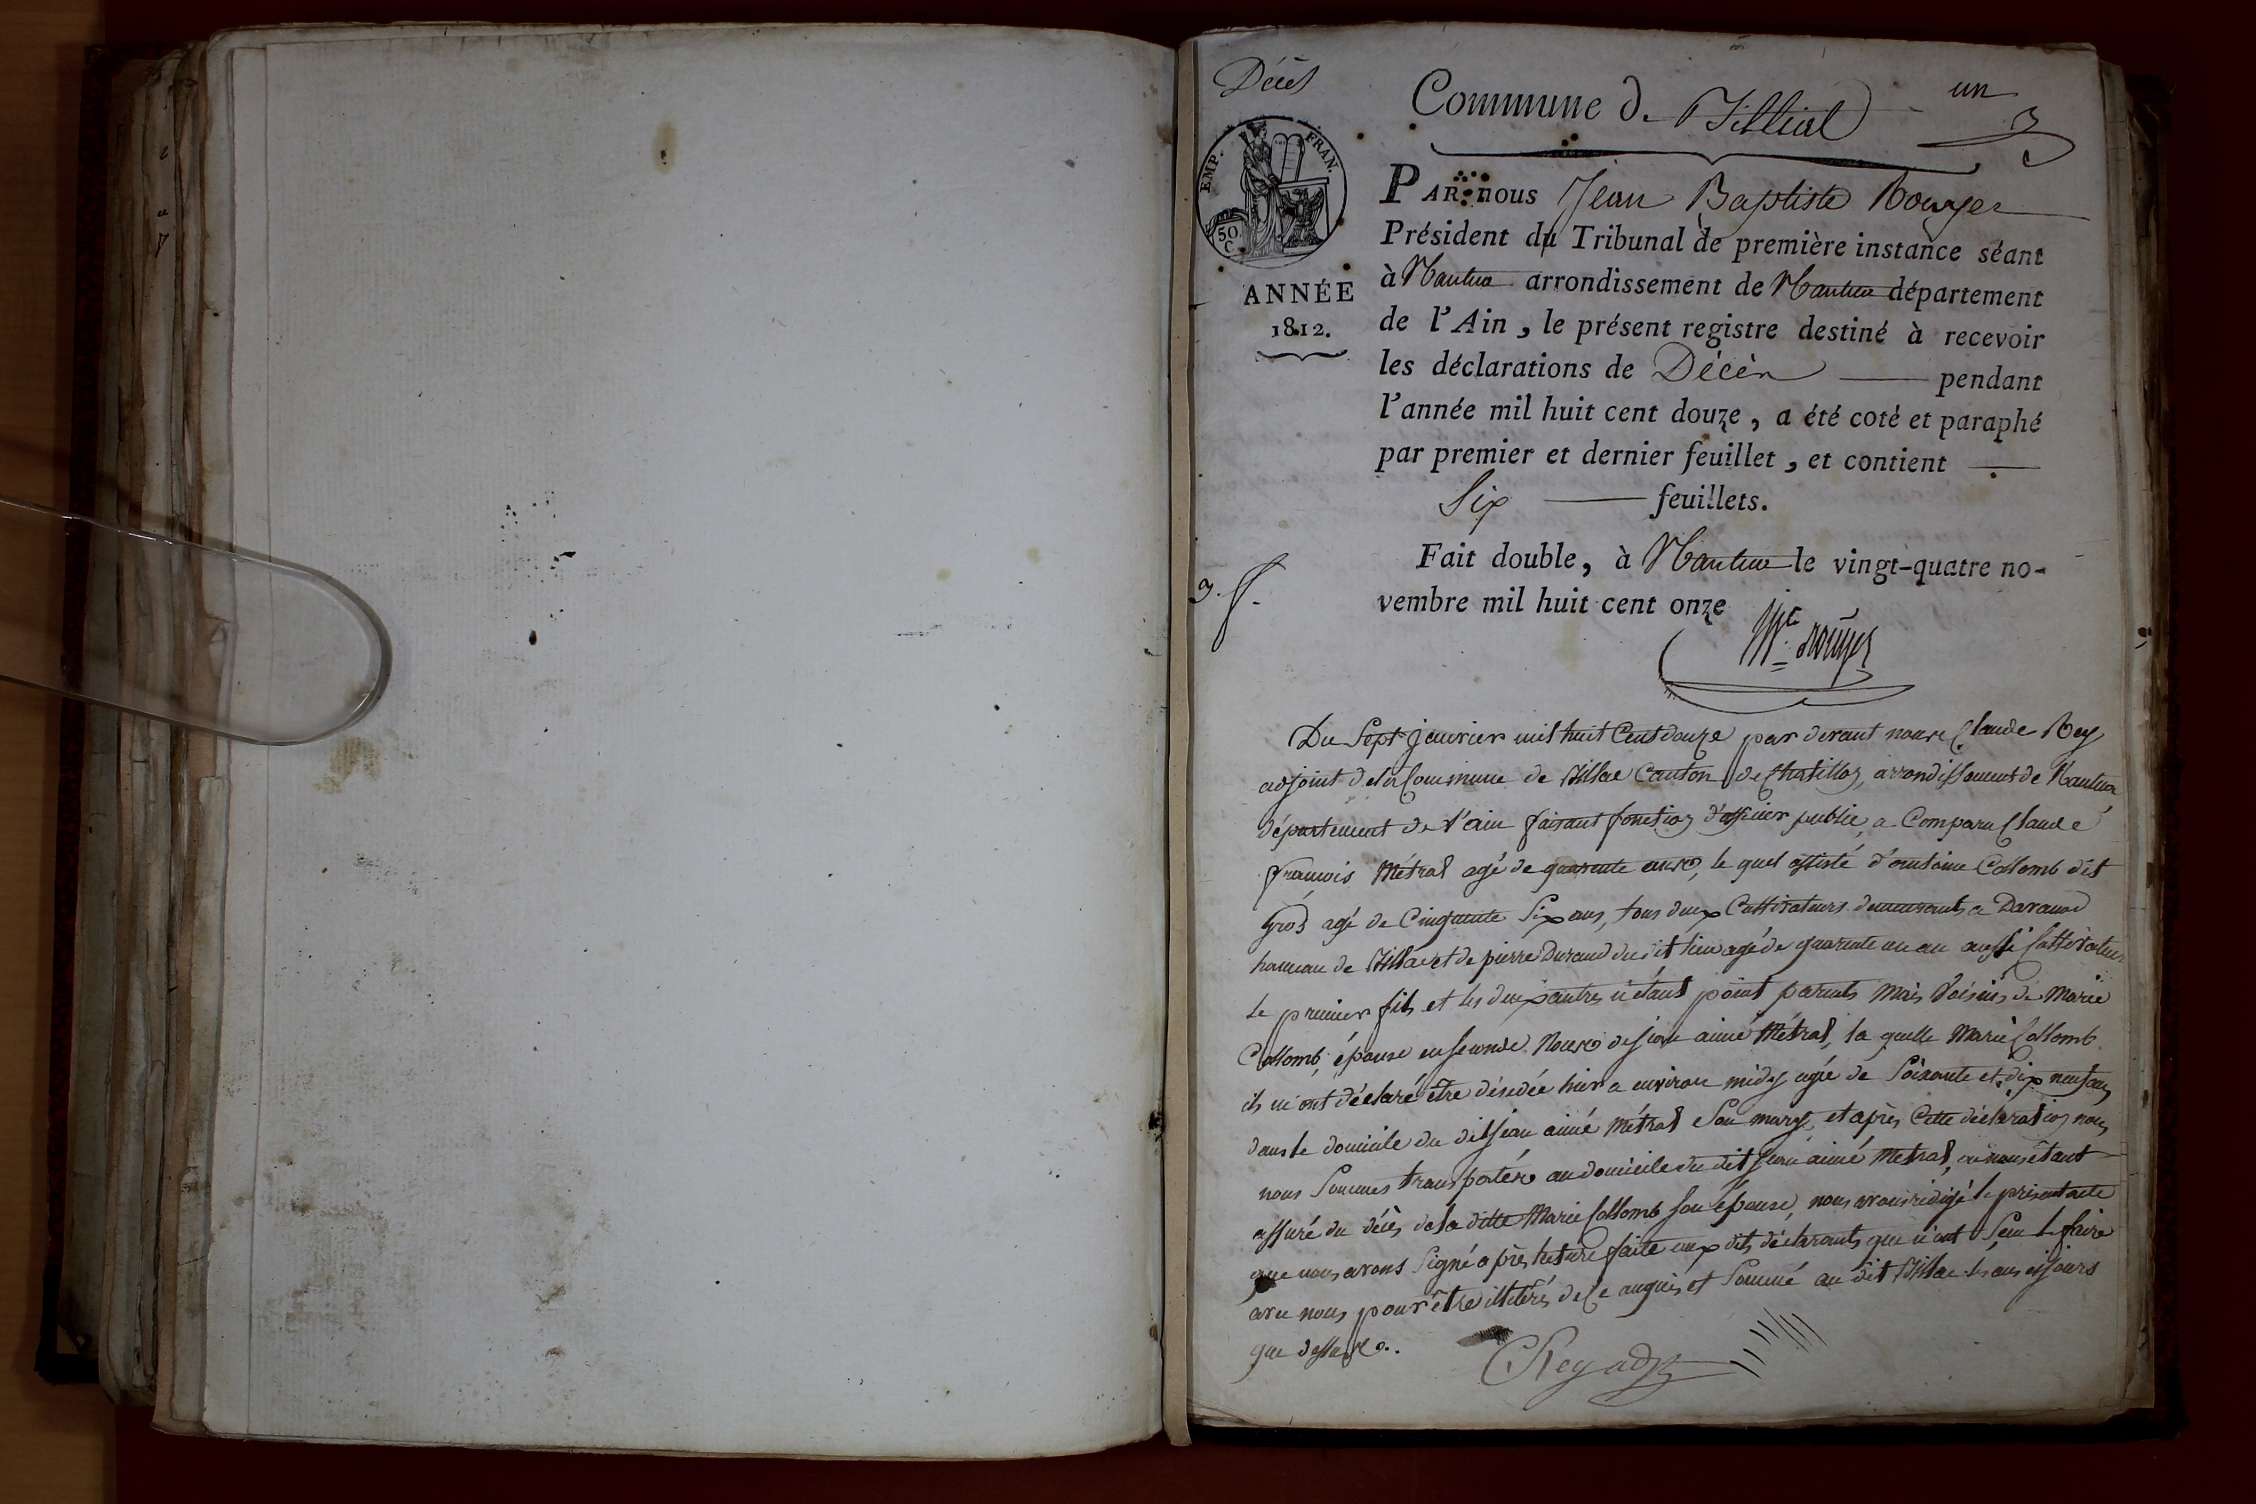 Décès
Commune de Billiat
un
EMP. FRAN.
50
C
ANNÉE
1812.
PAR nous Jean Baptiste Rouyer
Président du Tribunal de première instance séant
à Nantua arrondissement de Nantua département
de l'Ain, le présent registre destiné à recevoir
les déclarations de Décès pendant
l'année mil huit cent douze, a été coté et paraphé
par premier et dernier feuillet, et contient
Six feuillets.
Fait double, à Nantua le vingt-quatre no-
vembre mil huit cent onze
3. f.
Rouyer
Du Sept janvier mil huit Cent douze par devant nous Claude Rey
adjoint de la Commune de Billiat Canton de Chatillon, arrondissement de Nantua
département de l'ain faisant fonction d'officier public, a Comparu Claude
françois Métral agé de quarante ans, le quel assisté d'antoine Collomb dit
gros agé de Cinquante Six ans, tous deux Cultivateurs demeurants a Davanod
hameau de Billiat et de pierre Durand du dit lieu agé de quarante un an aussi Cultivateur
le premier fils et les deux autres n'étant point parents mais Voisins de Marie
Collomb, épouse en seconde Noces de jean aimé Métral, la quelle Marie Collomb
ils m'ont déclaré être décédée hier a environ midy agée de Soixante et dix neuf ans
dans le domicile du dit jean aimé Métral Son mary, et après Cette déclaration nous
nous Sommes transportés au domicile du dit jean aimé Metral, où nous étant
assuré du décès de la ditte Marie Collomb son épouse, nous avons rédigé le présent acte
que nous avons Signé après lecture faite aux dits déclarants qui n'ont Seu le faire
avec nous pour être illitérés de Ce enquis et Sommé au dit Billiat les ans et jours
que dessus.
CRey adj